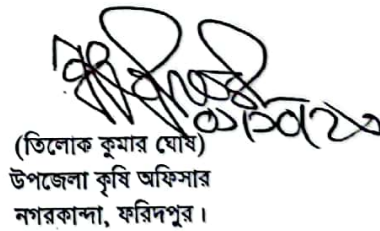 (তিলোক কুমার ঘোষ)
উপজেলা কৃষি অফিসার
নগরকান্দা, ফরিদপুর।